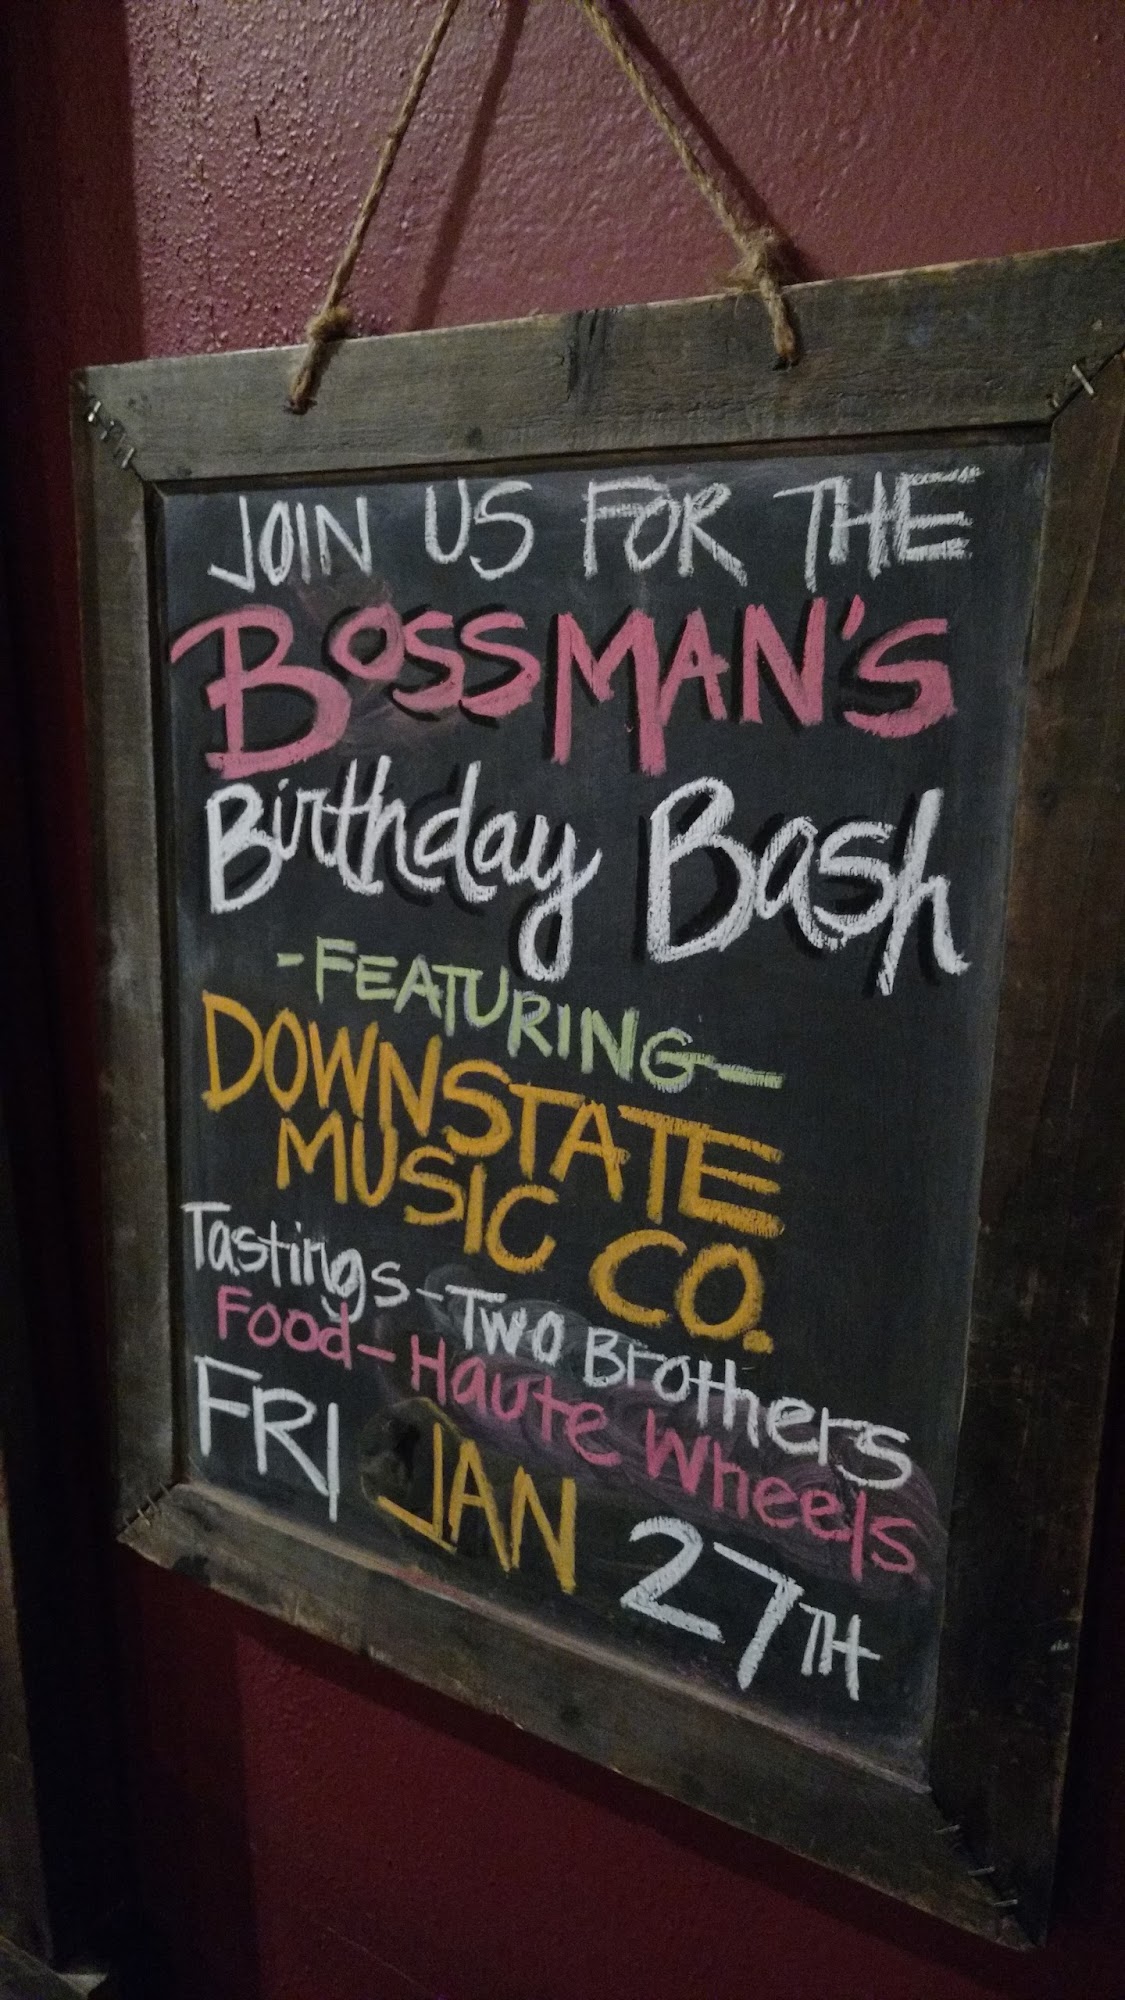 JOIN US FOR THE
BOSSMAN'S
Birthday Bash
-FEATURING-
DOWNSTATE
MUSIC CO.
Tastings-Two Brothers
Food-Haute Wheels
FRI JAN 27TH